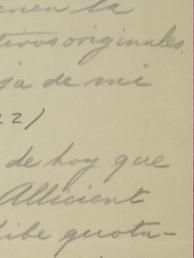 enen la
tivos originales.
ja de mi
22)
de hoy que
Allicient
libe quota-